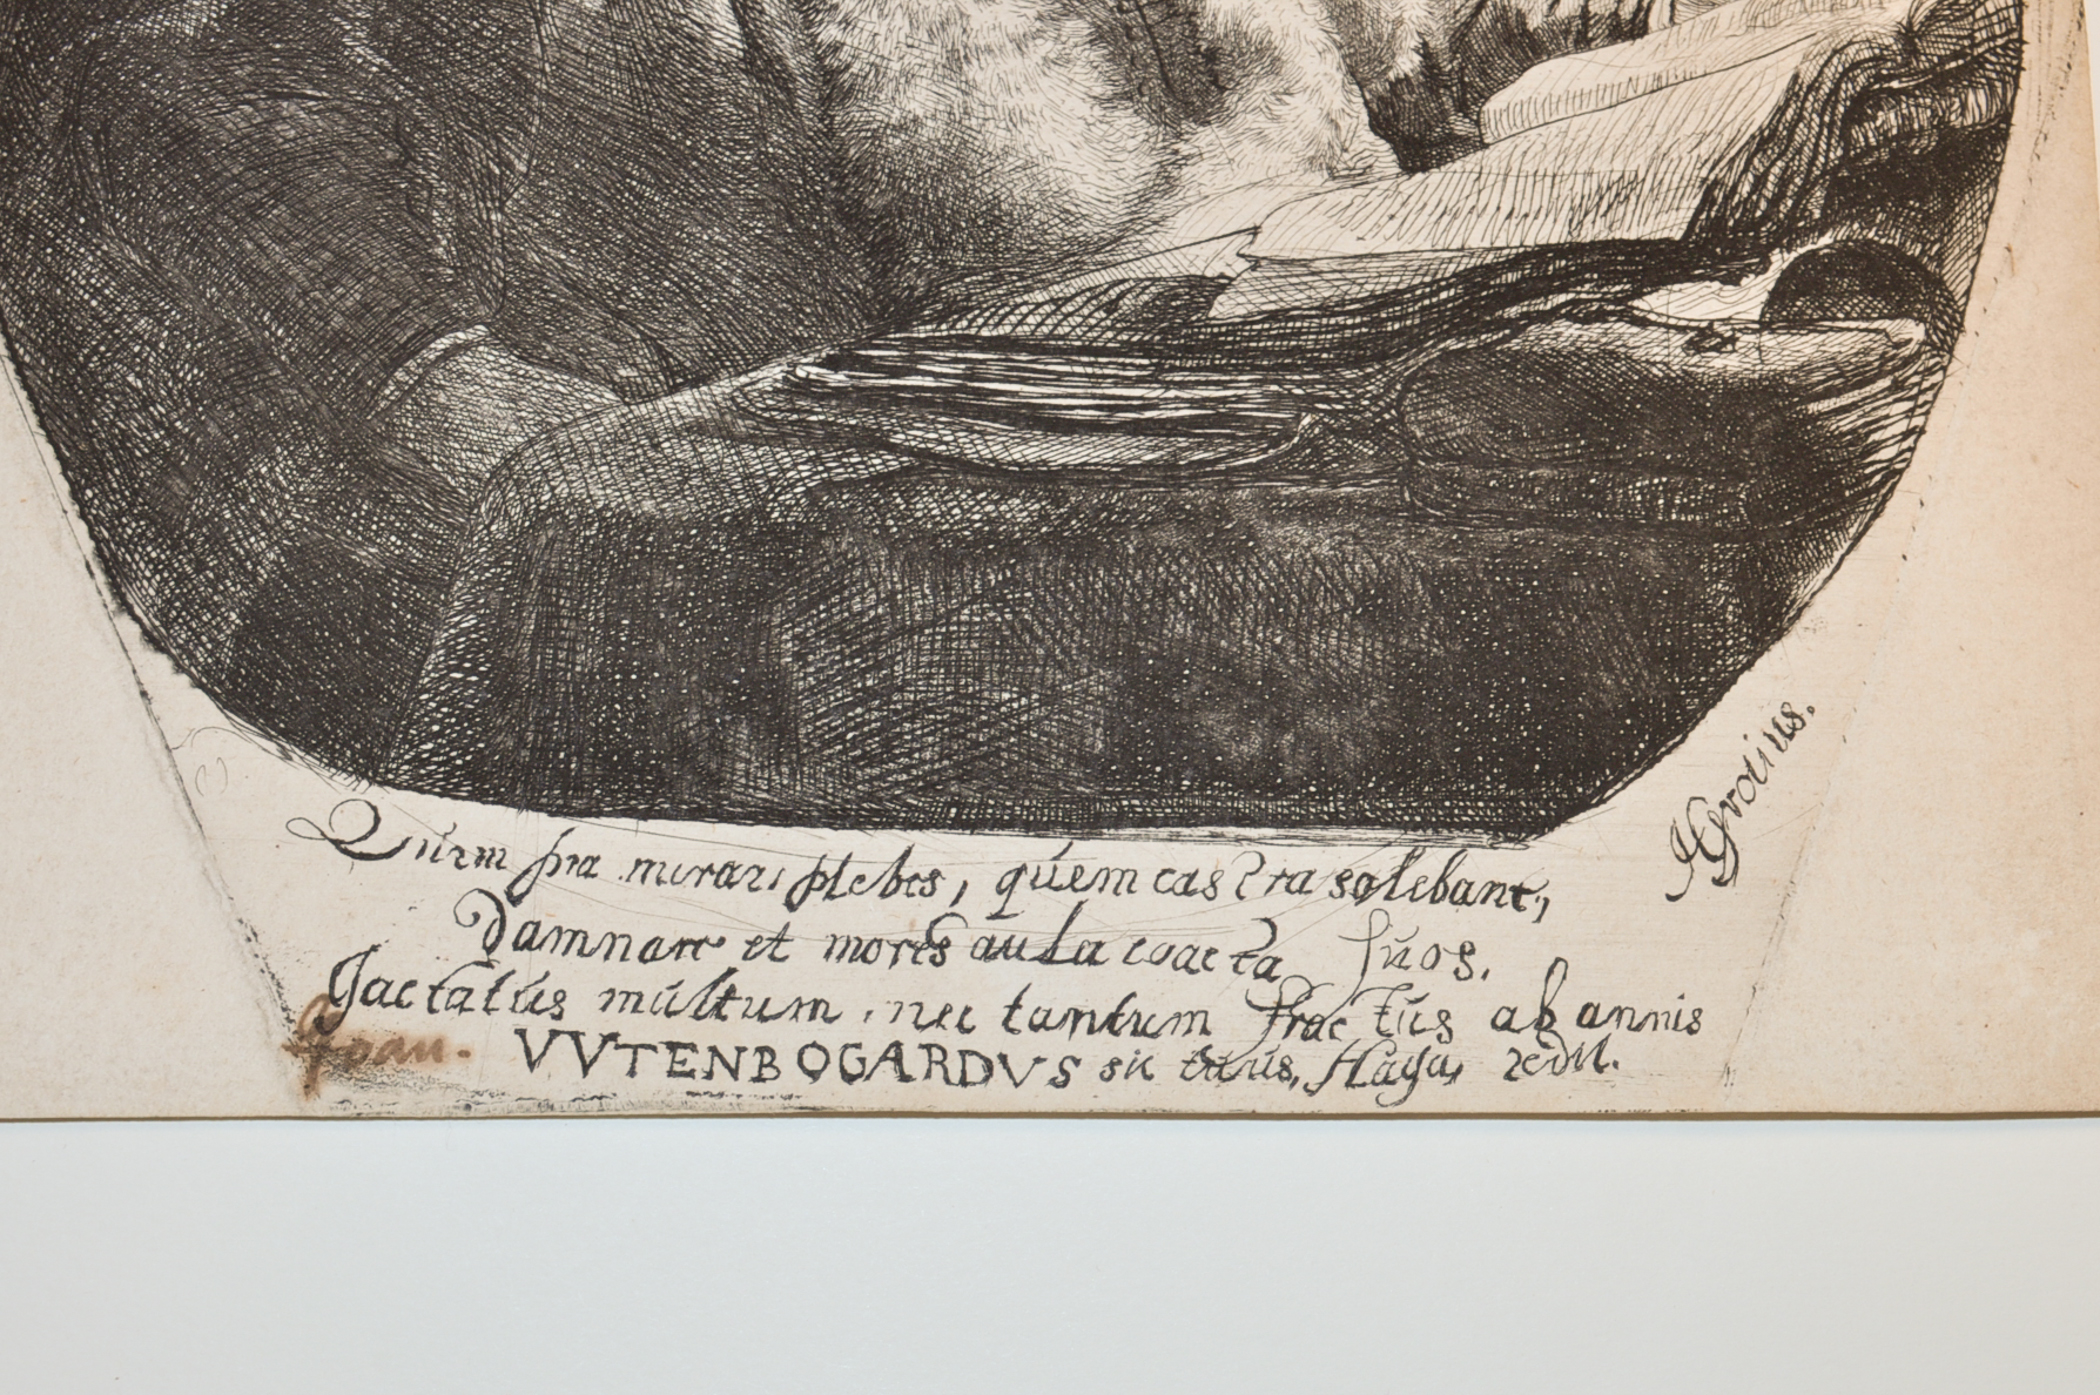 Quem pia mirari plebes, quem castra solebant,
Damnare et mores aula coacta suos.
Jactatus multum, nec tantum fractus ab annis
Joan. VVTENBOGARDVS sic tuus, Haga, redit.
HGrotius.